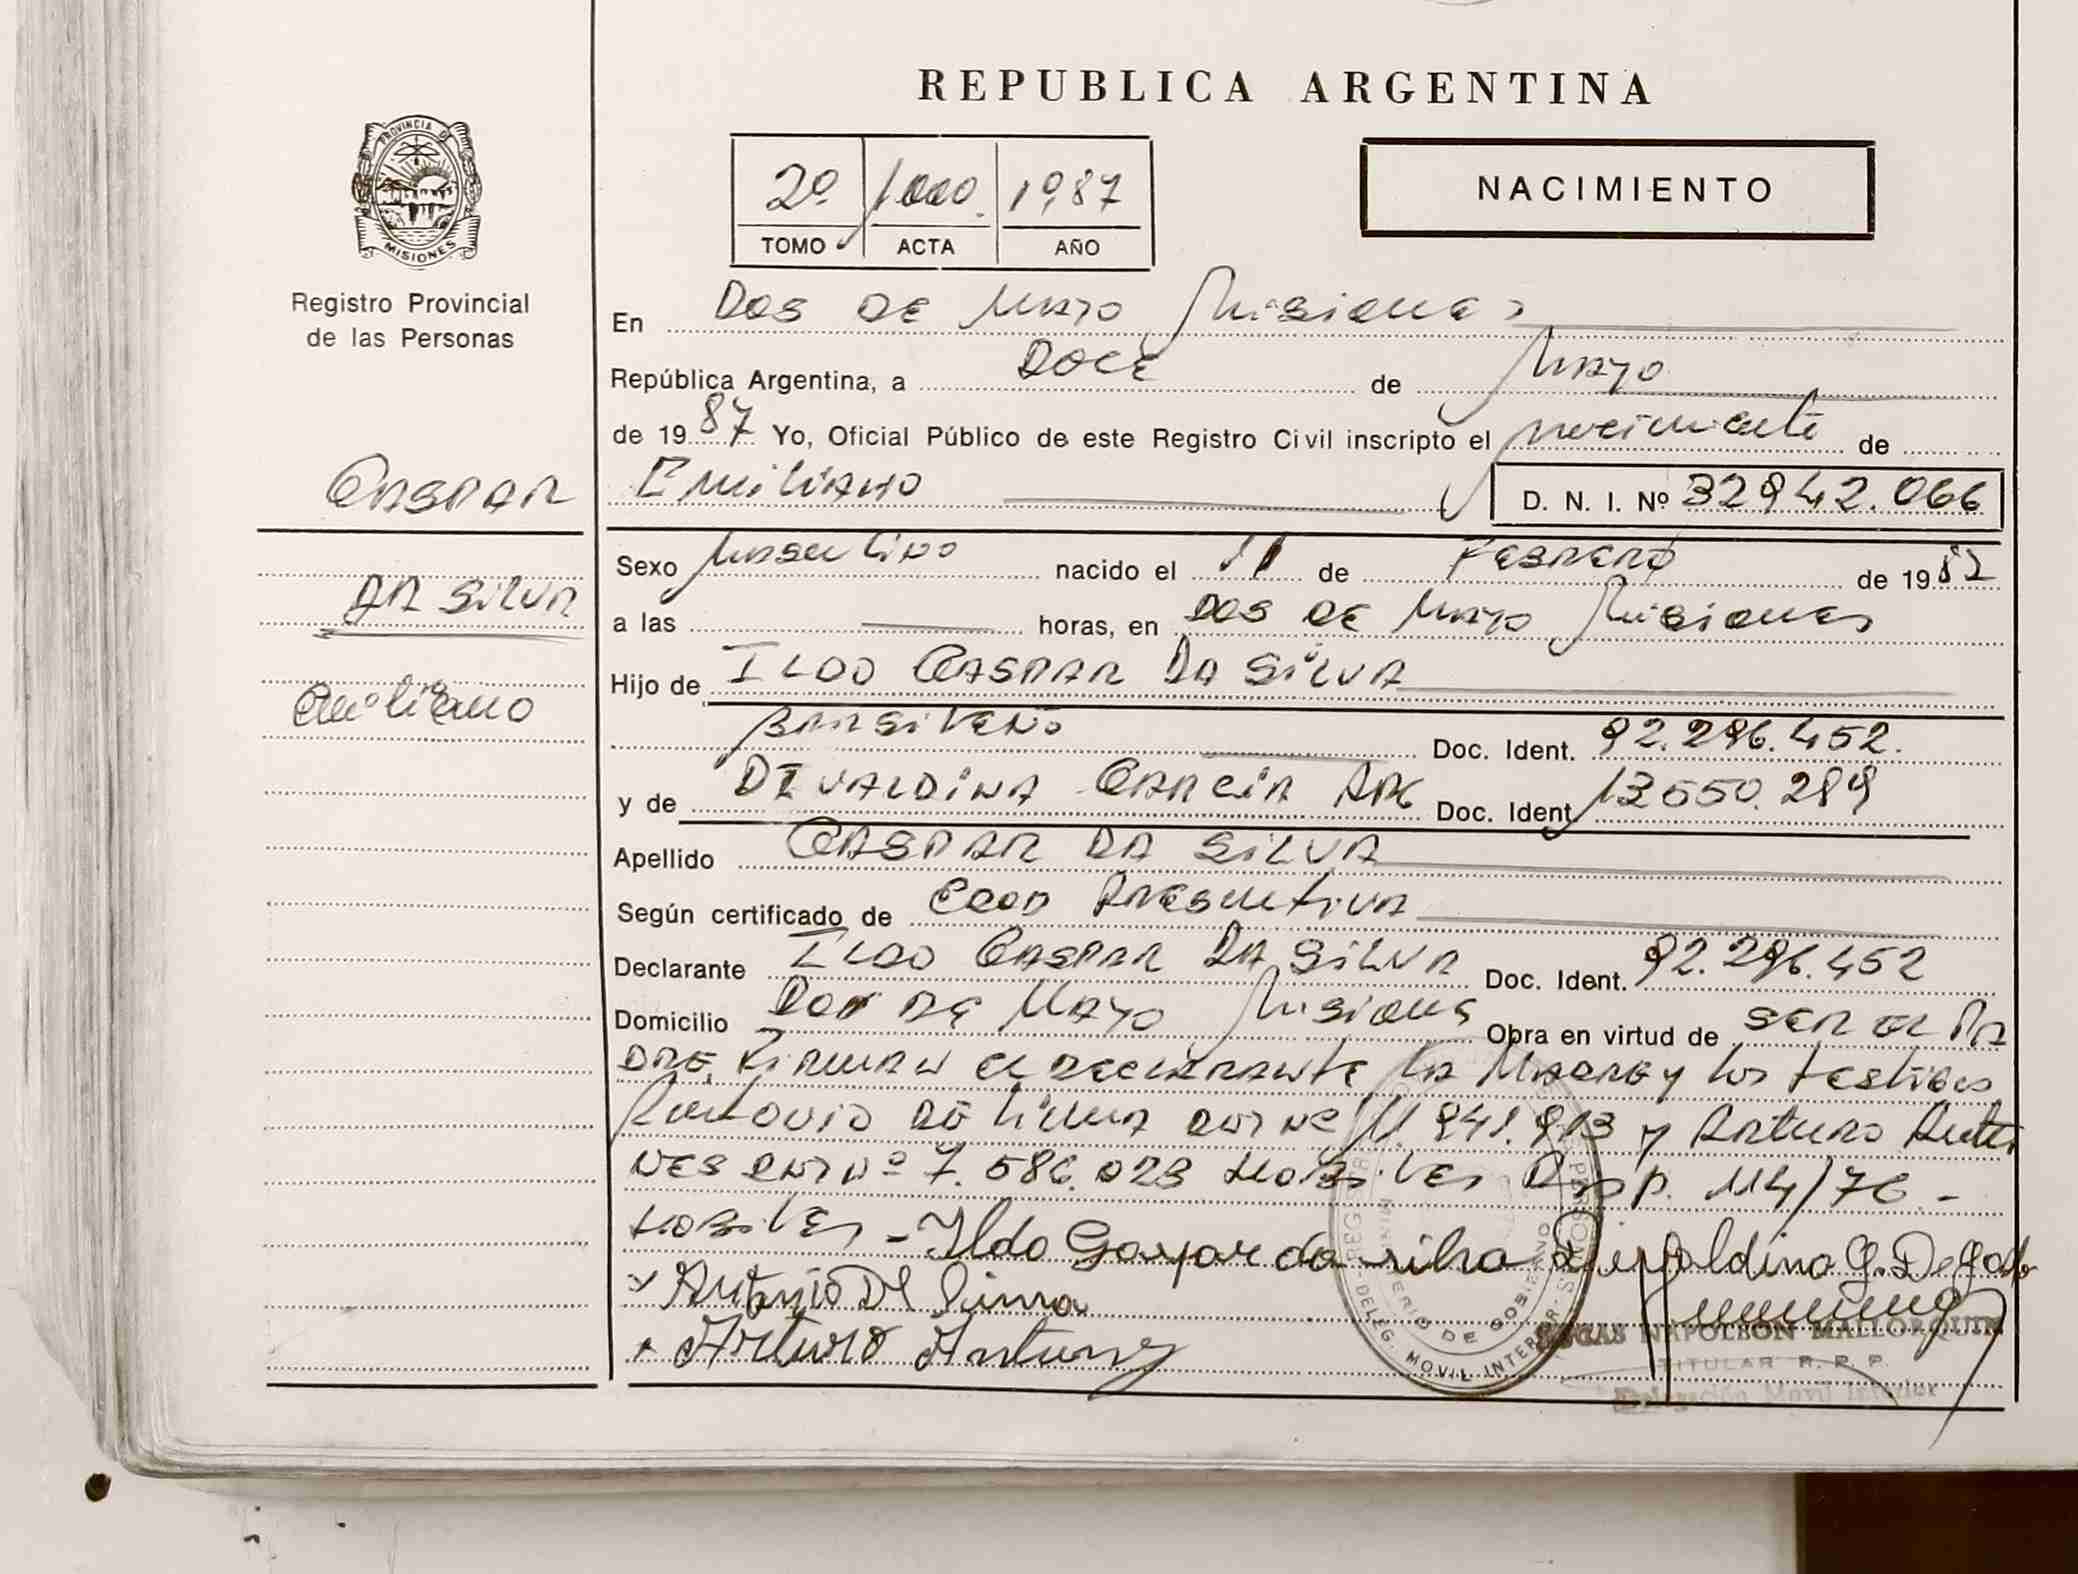 REPUBLICA ARGENTINA
PROVINCIA D
MISIONES
Registro Provincial
de las Personas
2º 1000. 1987
TOMO ACTA AÑO
NACIMIENTO
En DOS DE MAYO Misiones
República Argentina, a DOCE de Mayo
de 1987 Yo, Oficial Público de este Registro Civil inscripto el nacimiento de
GASPAR
EMiLiANO
D. N. I. Nº 32942.066
DA SiLVA
Emiliano
Sexo Masculino nacido el 11 de FEBRERO de 1982
a las horas, en DOS DE MAYO Misiones
Hijo de ILDO GASPAR DA SiLVA
BRASiLEÑO Doc. Ident. 92.296.452.
y de DIVALDiNA GARCiA ARG Doc. Ident. 13550.289
Apellido GASPAR DA SiLVA
Según certificado de Presuntiva
Declarante ILDO GASPAR DA SiLVA Doc. Ident. 92.296.452
Domicilio Dos DE MAYO Misiones Obra en virtud de SER EL PA
DRE. Firman el declarante la Madre y los testigos
Antonio DE Lima 841.913 y Arturo Antu
NES Nº 7.586.023 Hábiles Disp. 114/76 -
Hábiles - Ildo Gaspar da silva Divaldina G. De
Antonio De Lima
Arturo Antunez
NAPOLEON MALLORQUIN
TITULAR R. P. P.
Delegación Movil Interior
DELEG. MOVIL INTERIOR
DE GOBIERNO